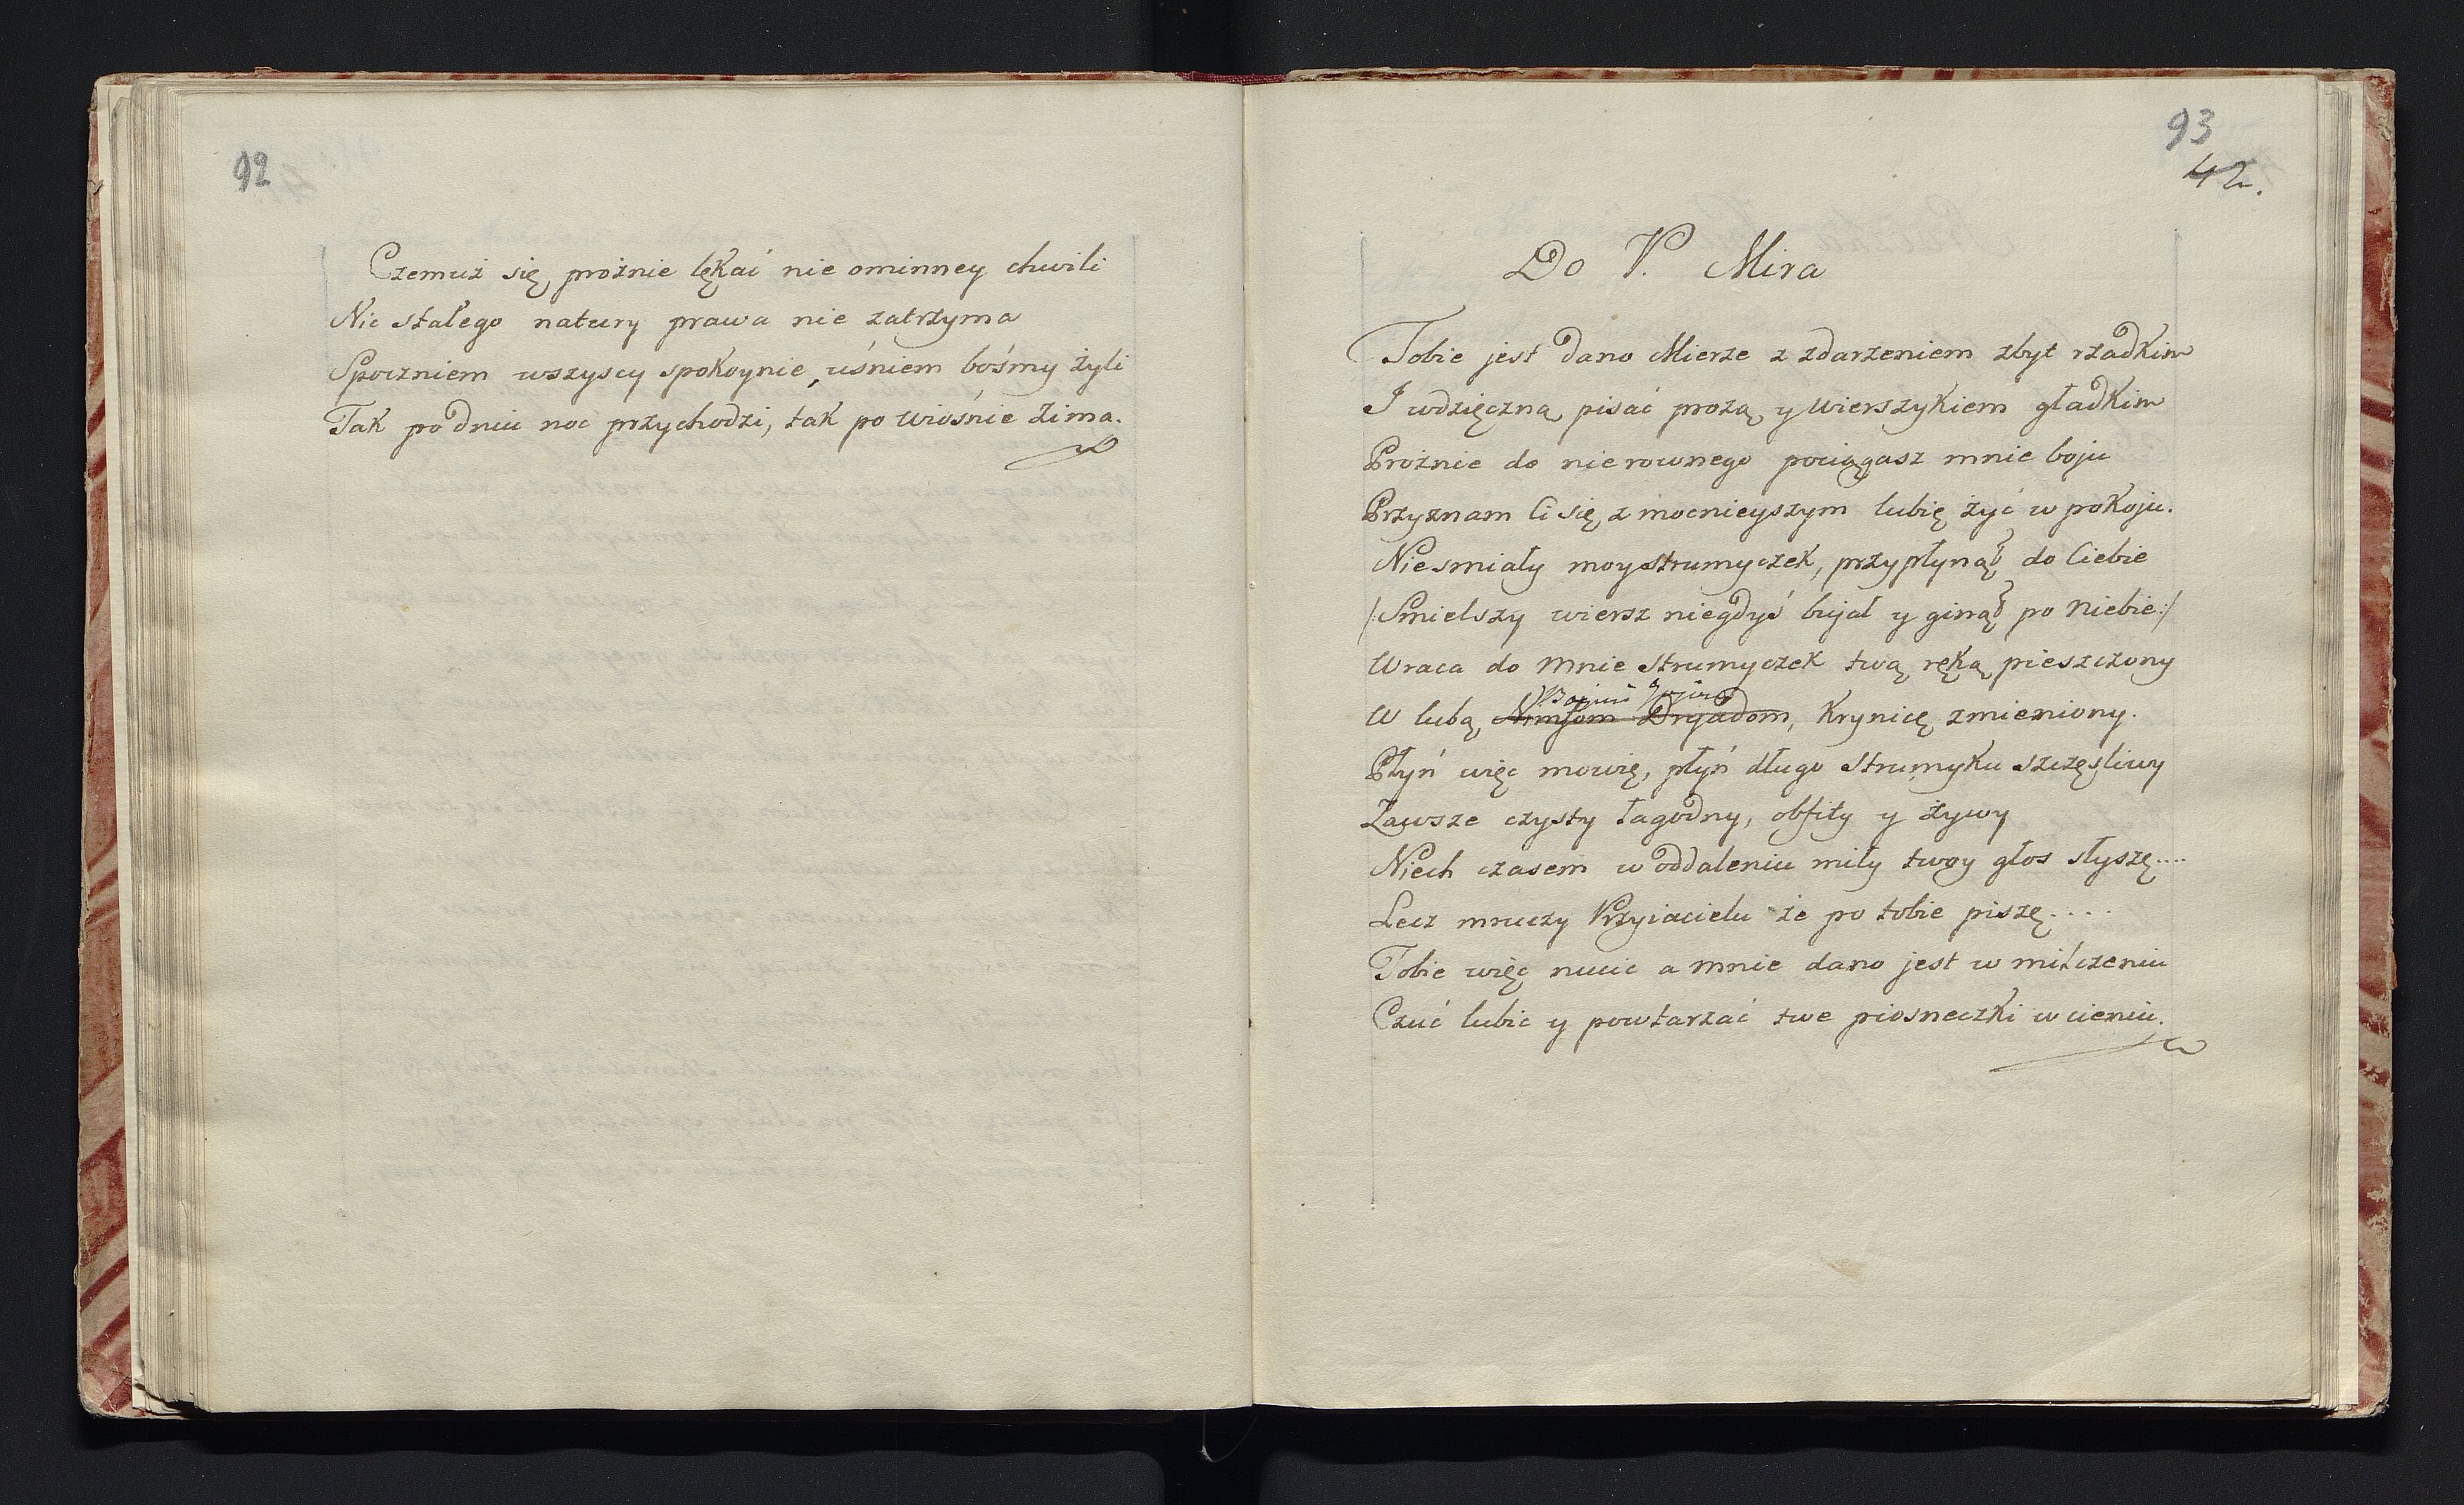 92
Czemuż się prożnie lękać nie ominney chwili
Nic stałego natury prawa nie zatrzyma
Spoczniem wszyscy spokoynie, uśniem bośmy żyli
Tak po dniu noc przychodzi, tak po wiośnie zima.
93
42.
Do V. Mira
Tobie jest dano Mierze z zdarzeniem zbyt rzadkim
I wdzięczną pisać prozą y wierszykiem gładkim
Prożnie do nierownego pociągasz mnie boju
Przyznam Ci się z mocnieyszym lubię żyć w pokoju.
Niesmiały moy strumyczek, przypłynął do Ciebie
/:Smielszy wiersz niegdyś bujał y ginął po niebie:/
Wraca do mnie strumyczek twą ręką pieszczony
Bogiń
W lubą Nimfom Dryadom, Krynicę zmieniony.
Płyń więc mowię, płyń długo strumyku szczęsliwy
Zawsze czysty łagodny, obfity y żywy
Niech czasem w oddaleniu miły twoy głos słyszę....
Lecz mruczy Przyiacielu że po tobie piszę....
Tobie więc nucic a mnie dano jest w milczeniu
Czuć lubic y powtarzać twe piosneczki w cieniu.